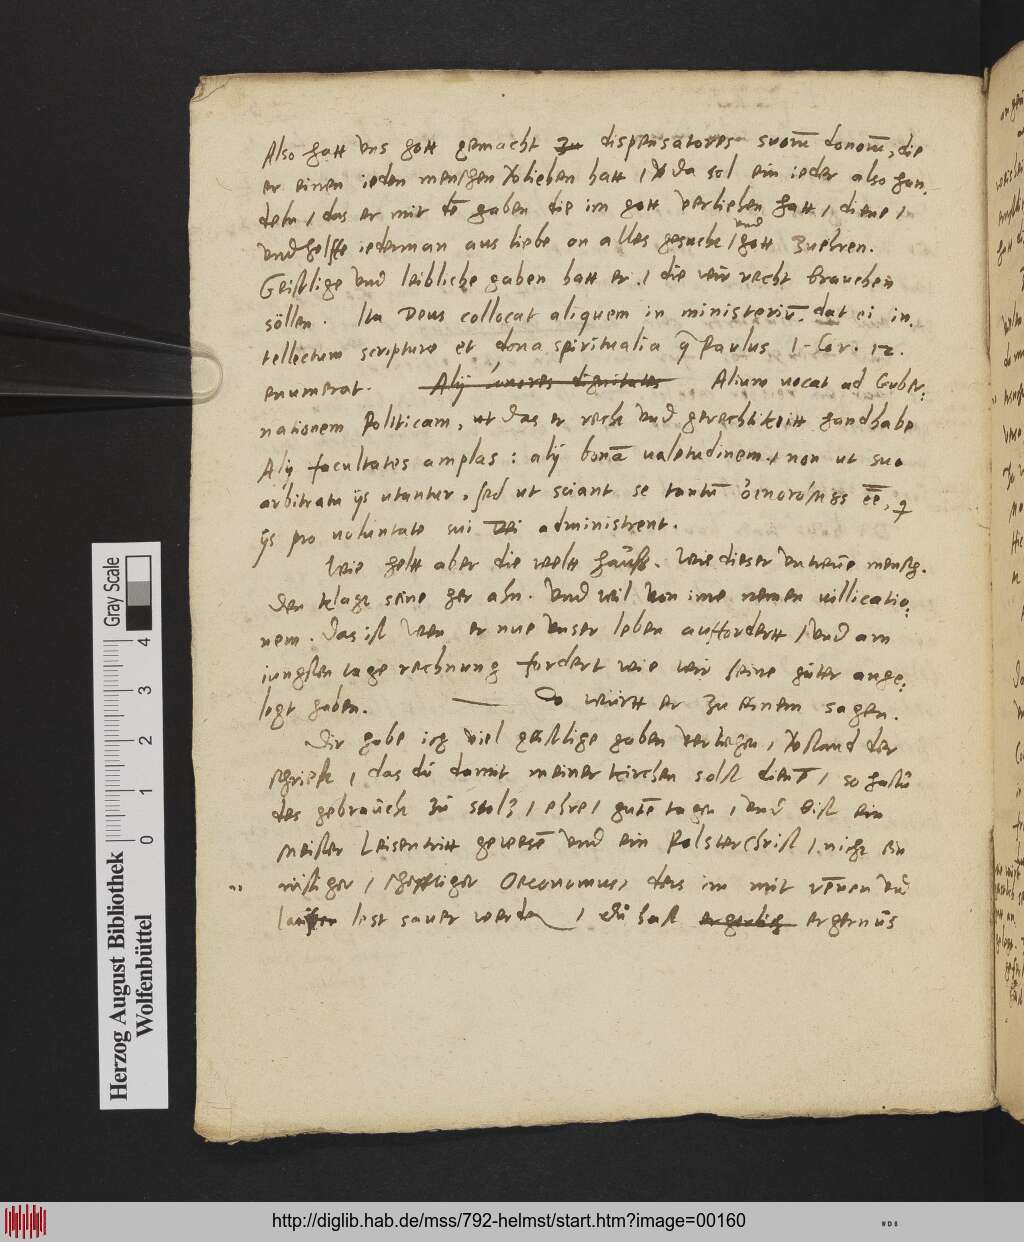 Also hatt uns gott gemacht zu dispensatores suorū donorū, die
er einen ieden menschen verlieben hatt / da sol ein ieder also han-
deln / das er mit dē gaben die im gott verliehen hatt / diene /
und helffe iederman aus liebe on alles gesuche / und gott zu ehren.
Geistlige und leibliche gaben hatt er / die wir recht brauchen
söllen. Ita Deus collocat aliquem in ministeriū, dat ei in-
tellectum scripturæ et dona spiritualia q̄ Paulus 1. Cor. 12.
enumerat. Alij honores dignitates Alium vocat ad Guber-
nationem Politicam, ut das er recht und gerechtikeitt handhabe
Alij facultates amplas: alij bonā valetudinem, non ut suo
arbitratu ijs utantur, sed ut sciant se tantū οἰκονόμους eē,
ijs pro voluntate sui Dei administrent.
Wie helt aber die welt hauß. Wie dieser untreue mensch.
Den klagt seine her ahn. Und wil von ime nemen villicatio-
nem. Das ist wen er nue unser leben auffordert / und am
iungsten tage rechnung fordert wie wir seine güter ange-
legt haben. Do wirtt er zu einem sagen.
Dir habe ich viel geistlige gaben verliehen, verstand der
schrift, das du damit meiner kirchen solst dienē, so hastu
des gebraucht zu stolz, ehre, gutē tagen, und bist ein
Meister Leisentritt gewesē und ein Polsterchrist, nicht ein
Oeconomus, der im mit rennen und
lauffen lest sauer werden, du hast ergerlich ergernüs
Herzog August Bibliothek
Wolfenbüttel
0 1 2 3 4
Gray Scale
http://diglib.hab.de/mss/792-helmst/start.htm?image=00160
WDB